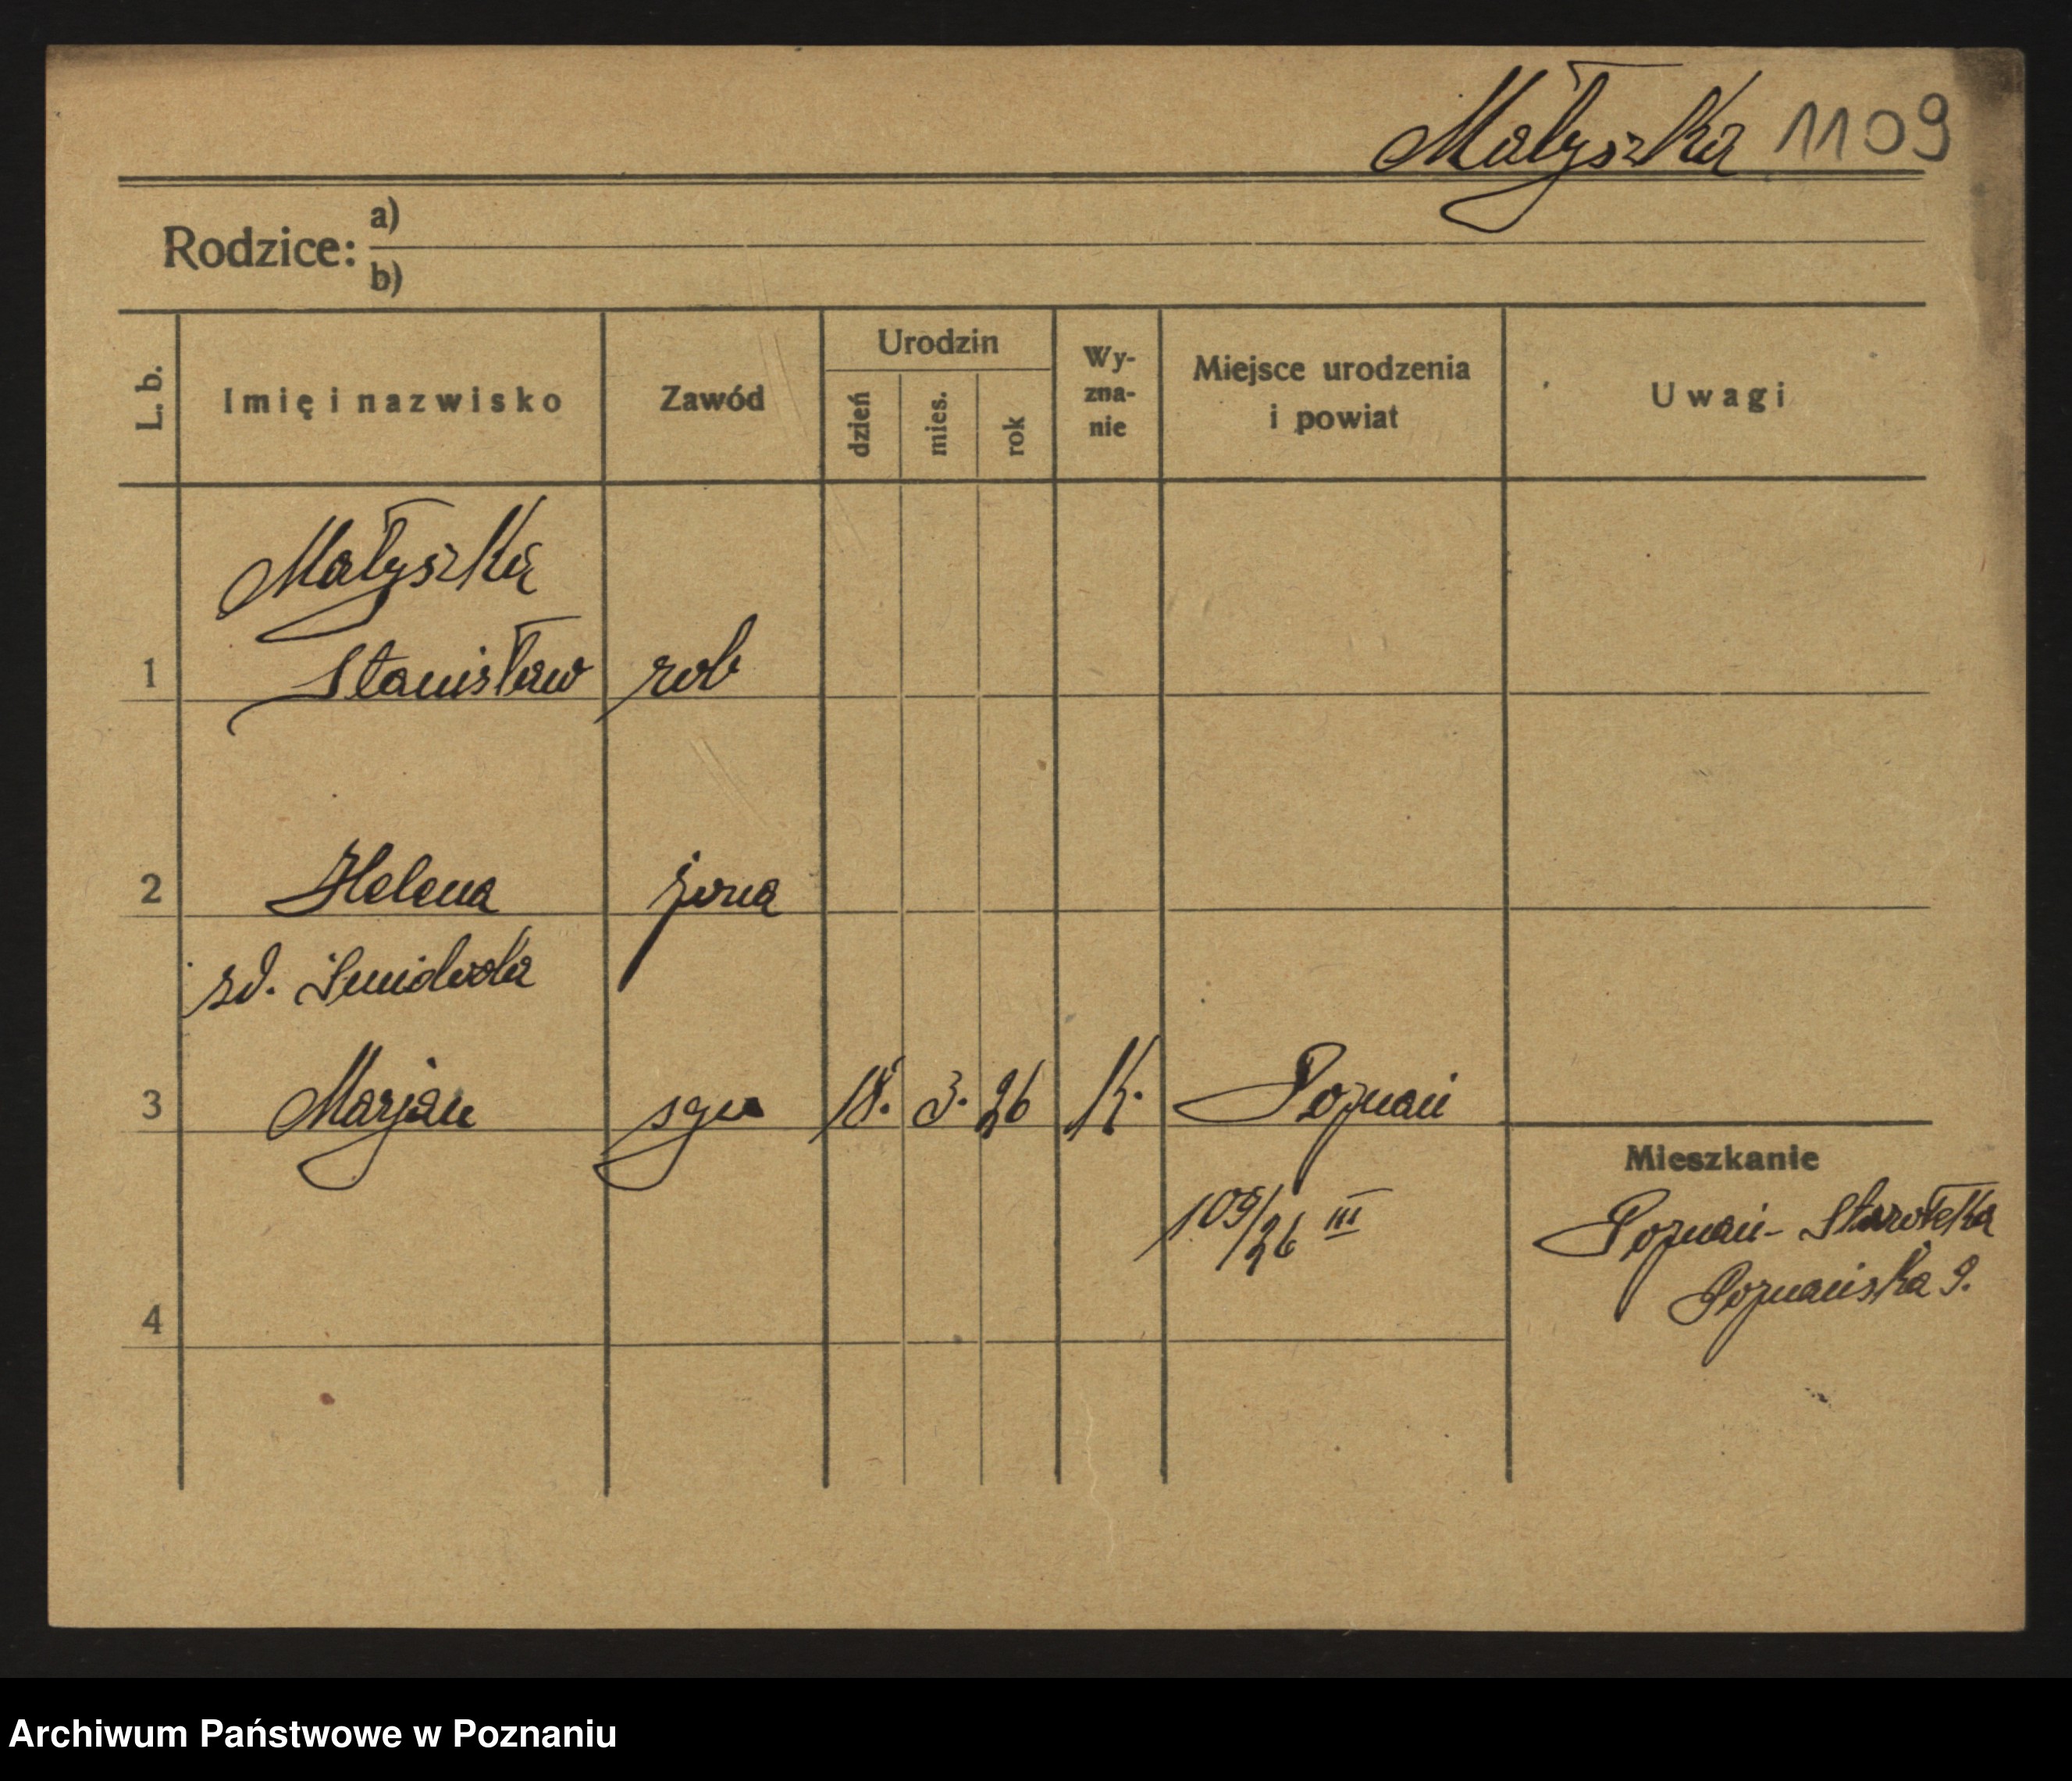 Małyszka 1109
Rodzice: a)
b)
L. b.
Imię i nazwisko
Zawód
Urodzin
dzień
mies.
rok
Wy-
zna-
nie
Miejsce urodzenia
i powiat
Uwagi
Małyszka
1 Stanisław rob
2 Helena żona
zd.
3 Marjan syn 18. 3. 26 K. Poznań
109/26 III
Mieszkanie
Poznań - Starołęka
Poznańska 9.
4
Archiwum Państwowe w Poznaniu